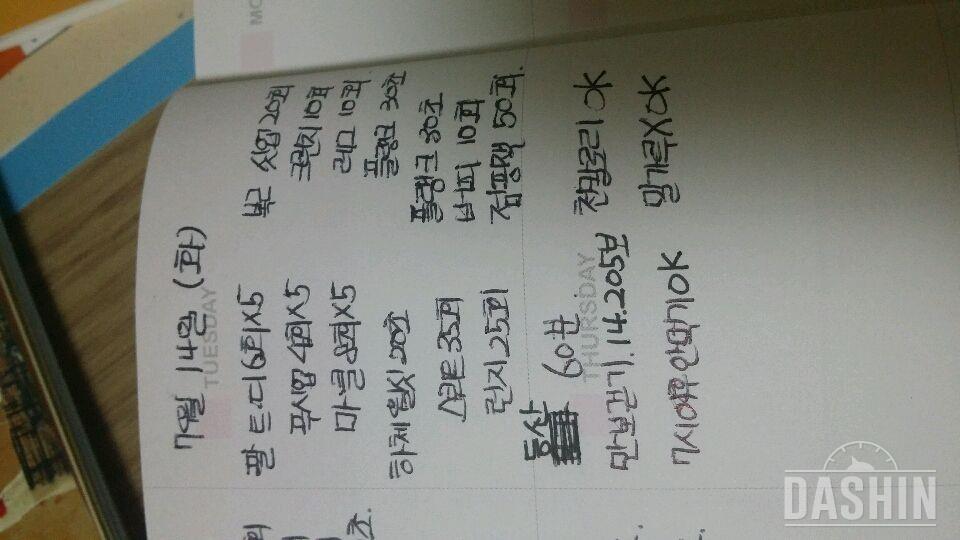 MO
TUESDAY
THURSDAY
7월 14일 (화)
팔 트.디6회X5
푸시업 4회X5
마.클 8회X5
하체 월싯 20초
스쿼트 35회
런지 25회
복근 싯업 20회
크런치 10회
레그 10회
플랭크 30초
플랭크 30초
버.피 10회
점핑잭 50회.
등산 60분.
만보걷기.14.205보
천칼로리 OK
7시이후안먹기OK
밀가루X OK
DASHIN